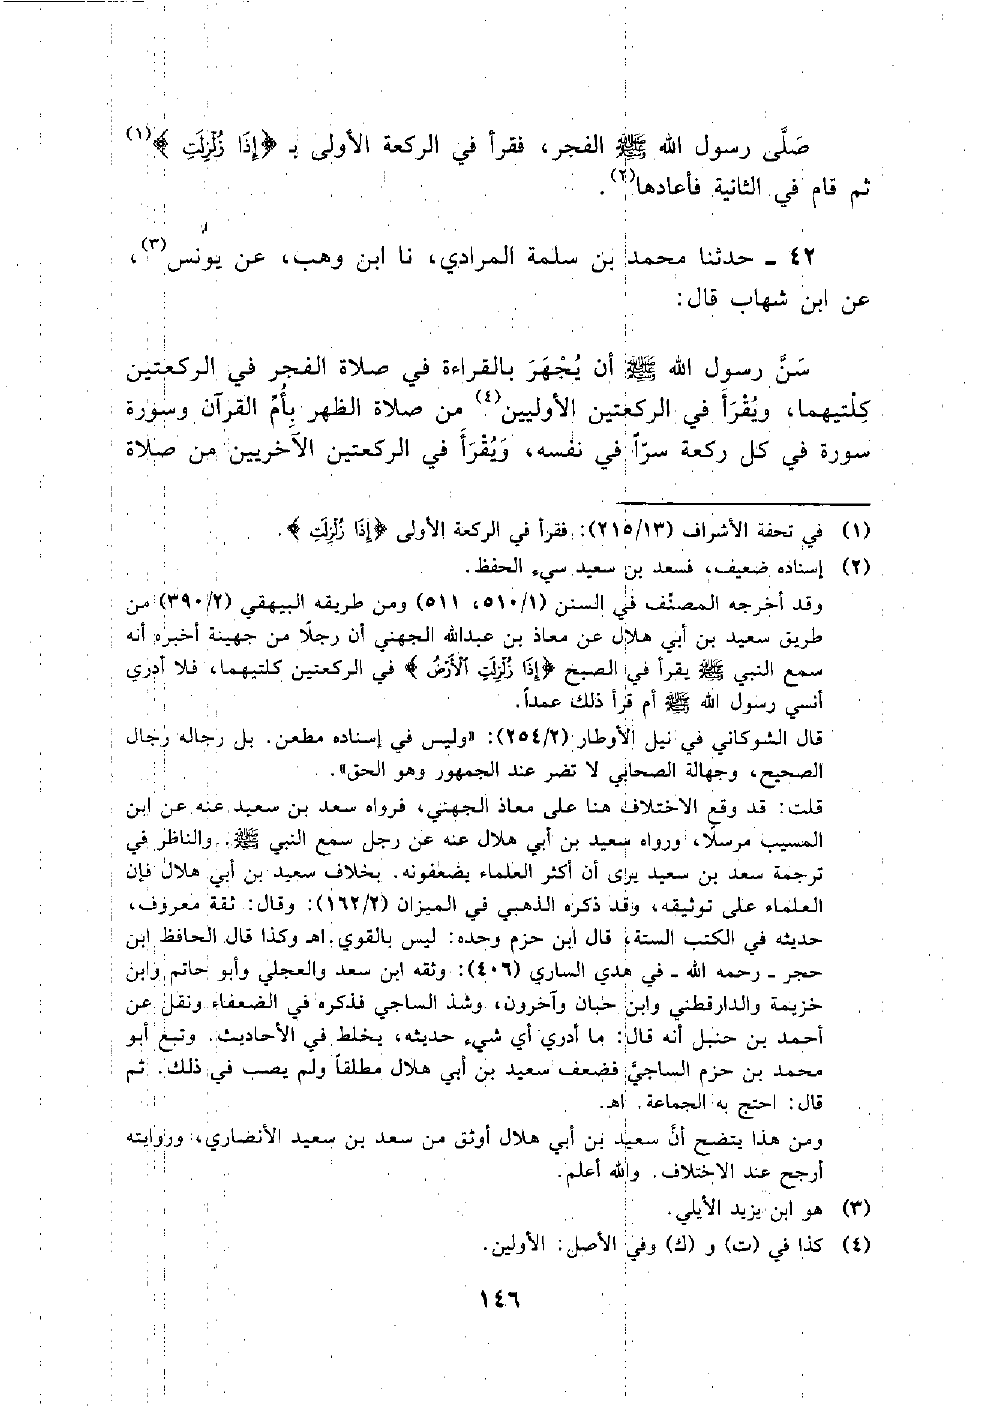 صَلَّى رسول الله ﷺ الفجر، فقرأ في الركعة الأولى بـ ﴿إِذَا زُلْزِلَتِ﴾(١)
ثم قام في الثانية فأعادها(٢).
٤٢ ـ حدثنا محمد بن سلمة المرادي، نا ابن وهب، عن يونس(٣)،
عن ابن شهاب قال:
سَنَّ رسول الله ﷺ أن يُجْهَرَ بالقراءة في صلاة الفجر في الركعتين
كِلْتيهما، ويُقْرَأَ في الركعتين الأوليين(٤) من صلاة الظهر بِأُمِّ القرآن وسورة
سورة في كل ركعة سرّاً في نفسه، وَيُقْرَأَ في الركعتين الآخريين من صلاة
(١) في تحفة الأشراف (٢١٥/١٣): فقرأ في الركعة الأولى ﴿إِذَا زُلْزِلَتِ﴾.
(٢) إسناده ضعيف، فسعد بن سعيد سيء الحفظ.
وقد أخرجه المصنّف في السنن (٥١٠/١، ٥١١) ومن طريقه البيهقي (٣٩٠/٢) من
طريق سعيد بن أبي هلال عن معاذ بن عبدالله الجهني أن رجلًا من جهينة أخبره أنه
سمع النبي ﷺ يقرأ في الصبح ﴿إِذَا زُلْزِلَتِ ٱلْأَرْضُ﴾ في الركعتين كلتيهما، فلا أدري
أنسي رسول الله ﷺ أم قرأ ذلك عمداً.
قال الشوكاني في نيل الأوطار (٢٥٤/٢): «وليس في إسناده مطعن. بل رجاله رجال
الصحيح، وجهالة الصحابي لا تضر عند الجمهور وهو الحق».
قلت: قد وقع الاختلاف هنا على معاذ الجهني، فرواه سعد بن سعيد عنه عن ابن
المسيب مرسلًا، ورواه سعيد بن أبي هلال عنه عن رجل سمع النبي ﷺ. والناظر في
ترجمة سعد بن سعيد يرى أن أكثر العلماء يضعفونه. بخلاف سعيد بن أبي هلال فإن
العلماء على توثيقه، وقد ذكره الذهبي في الميزان (١٦٢/٢): وقال: ثقة معروف،
حديثه في الكتب الستة، قال ابن حزم وحده: ليس بالقوي. اهـ وكذا قال الحافظ ابن
حجر ـ رحمه الله ـ في هدي الساري (٤٠٦): وثقه ابن سعد والعجلي وأبو حاتم وابن
خزيمة والدارقطني وابن حبان وآخرون، وشذ الساجي فذكره في الضعفاء ونقل عن
أحمد بن حنبل أنه قال: ما أدري أي شيء حديثه، يخلط في الأحاديث. وتبع أبو
محمد بن حزم الساجيَّ فضعف سعيد بن أبي هلال مطلقاً ولم يصب في ذلك. ثم
قال: احتج به الجماعة. اهـ.
ومن هذا يتضح أنَّ سعيد بن أبي هلال أوثق من سعد بن سعيد الأنصاري، وروايته
أرجح عند الاختلاف. والله أعلم.
(٣) هو ابن يزيد الأيلي.
(٤) كذا في (ت) و (ك) وفي الأصل: الأولين.
١٤٦